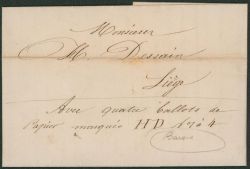 Monsieur
M. Dessain
Liége
Avec quatre ballots de
Papier marqués HD 1 à 4
Barque